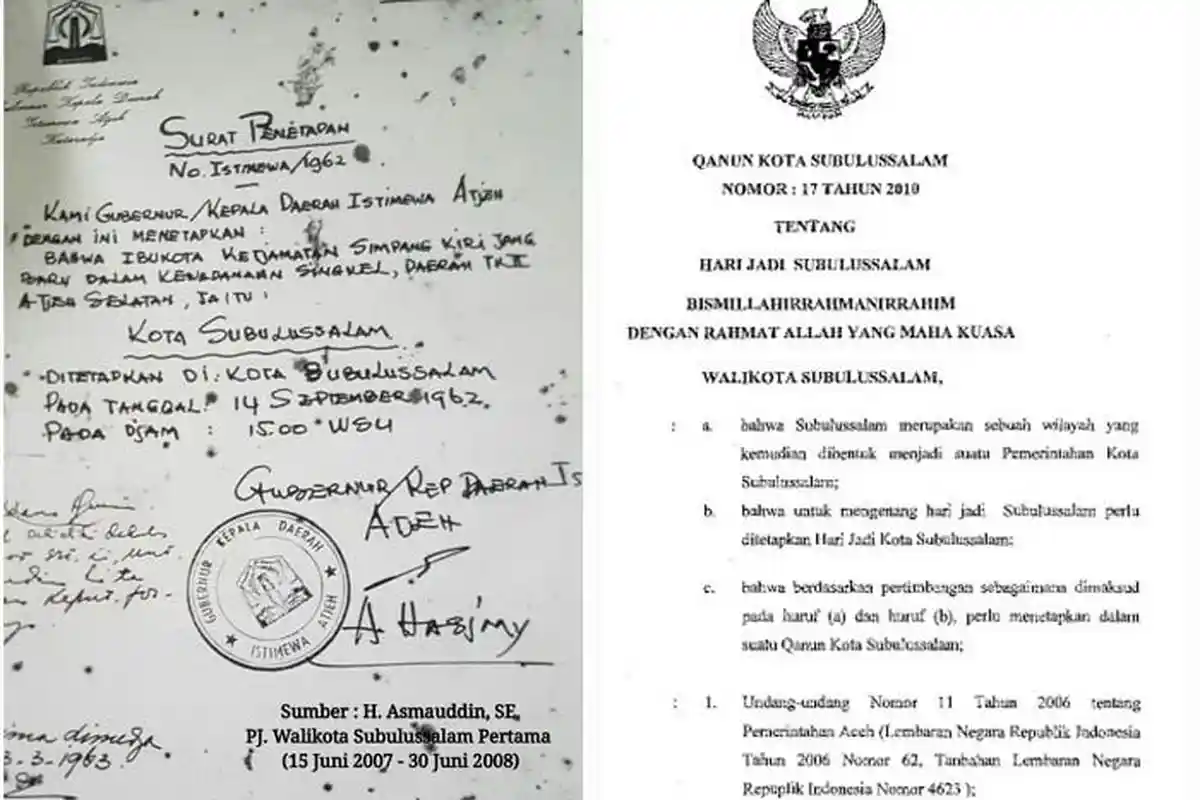 Republik Indonesia
Kepala Daerah
Istimewa Atjeh
SURAT PENETAPAN
No. ISTIMEWA/1962
KAMI GUBERNUR/KEPALA DAERAH ISTIMEWA ATJEH
DENGAN INI MENETAPKAN :
BAHWA IBUKOTA KETJAMATAN SIMPANG KIRI JANG
BARU DALAM KEWADANAAN SINGKEL, DAERAH TK II
ATJEH SELATAN, JAITU :
KOTA SUBULUSSALAM
DITETAPKAN DI : KOTA SUBULUSSALAM
PADA TANGGAL : 14 SEPTEMBER 1962.
PADA DJAM : 15.00 WSU
GUBERNUR/KEP DAERAH IS
ATJEH
GUBERNUR KEPALA DAERAH
ISTIMEWA ATJEH
A HASJMY
dimedja
3-3-1963
Sumber : H. Asmauddin, SE,
PJ. Walikota Subulussalam Pertama
(15 Juni 2007 - 30 Juni 2008)
QANUN KOTA SUBULUSSALAM
NOMOR : 17 TAHUN 2010
TENTANG
HARI JADI SUBULUSSALAM
BISMILLAHIRRAHMANIRRAHIM
DENGAN RAHMAT ALLAH YANG MAHA KUASA
WALIKOTA SUBULUSSALAM,
: a. bahwa Subulussalam merupakan sebuah wilayah yang
kemudian dibentuk menjadi suatu Pemerintahan Kota
Subulussalam;
b. bahwa untuk mengenang hari jadi Subulussalam perlu
ditetapkan Hari Jadi Kota Subulussalam;
c. bahwa berdasarkan pertimbangan sebagaimana dimaksud
pada huruf (a) dan huruf (b), perlu menetapkan dalam
suatu Qanun Kota Subulussalam;
: 1. Undang-undang Nomor 11 Tahun 2006 tentang
Pemerintahan Aceh (Lembaran Negara Republik Indonesia
Tahun 2006 Nomor 62, Tambahan Lembaran Negara
Repuplik Indonesia Nomor 4623 );